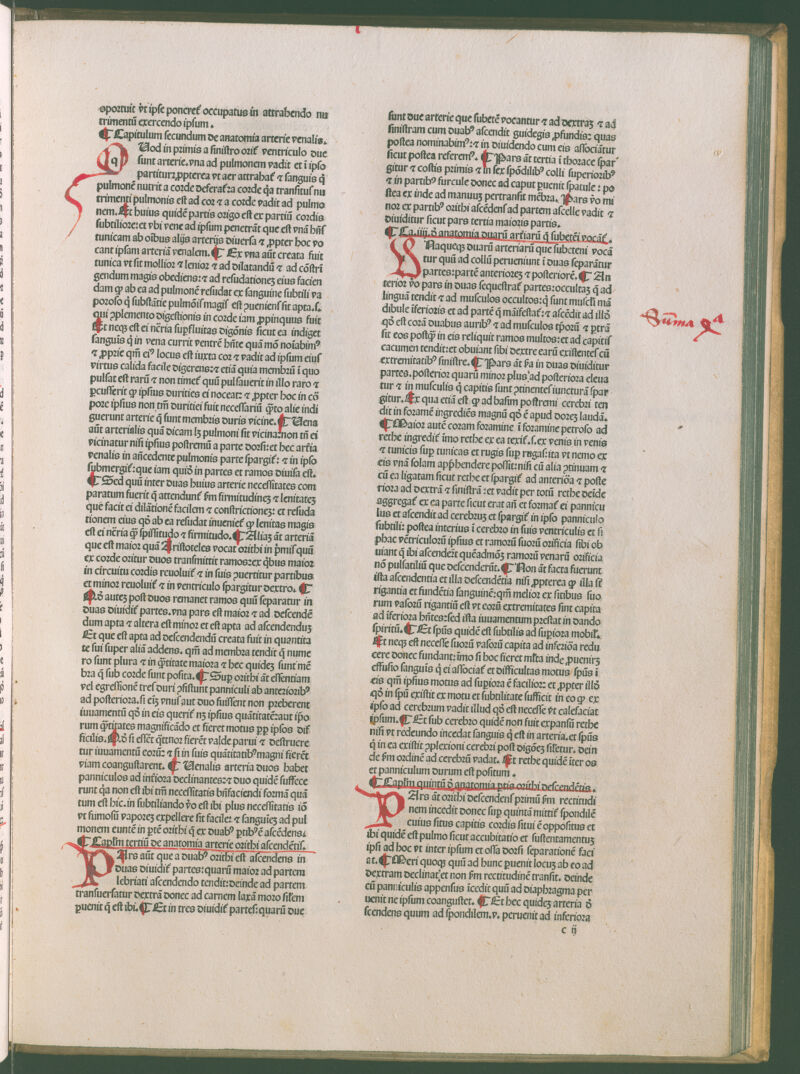 oportuit vt ipse poneret̃ occupatus in attrahendo nu
trimentũ exercendo ipsum.
¶ Capitulum secundum de anatomia arterie venalis.
Quod in primis a sinistro orit̃ ventriculo due
sunt arterie. vna ad pulmonem vadit et ĩ ipso
partitur, ppterea vt aer attrahat̃ ⁊ sanguis q̃
pulmonẽ nutrit a corde deferat̃: a corde q̃a transitus nu
trimenti pulmonis est ad cor ⁊ a corde vadit ad pulmo
nem. Et huius quidẽ partis origo est ex partiũ cordis
subtiliore: et vbi vene ad ipsum penetrãt que est vnã hñs
tunicam ab oĩbus alijs arterijs diuersa ⁊ ppter hoc vo
cant ipsam arteriã venalem. ¶ Ex vna aũt creata fuit
tunica vt sit mollior ⁊ leuior ⁊ ad dilatandũ ⁊ ad cõstrĩ
gendum magis obediens: ⁊ ad resudationẽs eius facien
dam q̃ ab ea ad pulmonẽ resudat ex sanguine subtili va
poroso q̃ substãtie pulmõis magis est ꝯueniens sit apta. s.
qui ꝯplemento digestionis in corde iam ꝓpinquus fuit
Et neq̃ est ei nc̃ria supfluitas digõnis sicut ea indiget
sanguis q̃ in vena currit ventrẽ hñte quã mõ noĩabim⁹
⁊ ꝓprie qm̃ ei⁹ locus est iuxta cor ⁊ vadit ad ipsum eius
virtus calida facile digerens: ⁊ etiã quia membrũ ĩ quo
pulsat est rarũ ⁊ non timet̃ quũ pulsauerit in illo raro ⁊
ꝑcusserit q̃ ipsius durities ei noceat: ⁊ ꝓpter hoc in cõ
pore ipsius non tm̃ duritiei fuit necessariũ q̃to alie indi
guerunt arterie q̃ sunt membris duris vicine. ¶ Vena
aũt arterialis quã dicam lꝫ pulmoni sit vicina: non tñ ei
vicinatur nisi ipsius postremũ a parte dorsi: et hec artẽia
venalis in añcedente pulmonis parte spargit̃: ⁊ in ipso
submergit̃: que iam quiõ in partes et ramos diuisa est.
¶ Sed quũ inter duas huius arterie necessitates com
paratum fuerit q̃ attendunt̃ s̃m firmitudinẽ ⁊ lenitateꝫ
que facit ei dilãtionẽ facilem ⁊ constrictionem: et resuda
tionem eius q̃õ ab ea resudat inueniet̃ q̃ lenitas magis
est ei nc̃ria q̃ spissitudo ⁊ firmitudo. ¶ Aliaꝫ aũt arteriã
que est maior quã Aristoteles vocat orithi in p̃mis quũ
ex corde oritur duos transmittit ramos: ex q̃bus maior
in circuitu cordis reuoluit̃ ⁊ in suis ꝯuertitur partibus
et minor reuoluit̃ ⁊ in ventriculo spargitur dextro. ¶
Hõ auteꝫ post duos remanet ramos quũ separatur in
duas diuidit̃ partes. vna pars est maior ⁊ ad descendẽ
dum apta ⁊ altera est minor et est apta ad ascendenduꝫ
Et que est apta ad descendendũ creata fuit in quantita
te sui super aliã addens. qm̃ ad membra tendit q̃ nume
ro sunt plura ⁊ in q̃titate maiora ⁊ hec quideꝫ sunt mẽ
bra q̃ sub corde sunt posita. ¶ Sup orithi aũt essentiam
vel egressionẽ tres duri ꝯsistunt panniculi ab anteriorib⁹
ad posteriora. si eiꝫ vnus aut duo fuissent non preberent
iuuamentũ q̃õ in eis querit̃ nꝫ ipsius quãtitatẽ: aut ipo
rum q̃titates magnificãdo et fieret motus ꝓp ipsos dif
ficilis. Hõ si essẽt q̃ttuor fierẽt valde parui ⁊ destruere
tur iuuamentũ eorũ: ⁊ si in suis quãtitatib⁹ magni fierẽt
viam coangustarent. ¶ Venalis arteria duos habet
panniculos ad intiora declinantes: ⁊ duo quidẽ suffece
runt q̃a non est ibi tm̃ necessitatis bñfaciendi formã quã
tum est hic. in subtiliando ṽo est ibi plus necessitatis iõ
vt fumosũ vaporeꝫ expellere sit facile: ⁊ sanguineꝫ ad pul
monem euntẽ in p̃tẽ orithi q̃ ex duab⁹ ptib⁹ ẽ ascẽdens.
¶ Caplm̃ tertiũ de anatomia arterie orithi ascendẽtis.
Pars aũt que a duab⁹ orithi est ascendens in
duas diuidit̃ partes: quarũ maior ad partem
lebriati ascendendo tendit: deinde ad partem
transuersatur dextrã donec ad carnem laxã moro silem
ꝑuenit q̃ est ibi. ¶ Et in tres diuidit̃ partes: quarũ due
sunt due arterie que subetẽ vocantur ⁊ ad dextraꝫ ⁊ ad
sinistram cum duab⁹ ascendit guidegis ꝓfundis: quas
postea nominabim⁹: ⁊ in diuidendo cum eis associãtur
sicut postea referem⁹. ¶ Pars ãt tertia ĩ thorace spar
gitur ⁊ costis primis ⁊ in sex spõdilib⁹ colli superiorib⁹
⁊ in partib⁹ furcule donec ad caput ꝑuenit spatule: po
stea ex inde ad manuuꝫ pertransit mẽbra. Pars ṽo mi
nor ex partib⁹ orithi ascẽdens ad partem ascelle vadit ⁊
diuiditur sicut pars tertia maioris partis.
¶ Ca. iiij. ð anatomia duarũ artiarũ q̃ subetẽi vocãt̃.
Vnaqueqꝫ duarũ arteriarũ que subeteni vocã
tur quũ ad collũ perueniunt ĩ duas separãtur
partes: partẽ anterioreꝫ ⁊ posteriorẽ. ¶ An
terior ṽo pars in duas sequestrat̃ partes: occultaꝫ q̃ ad
linguã tendit ⁊ ad musculos occultos: q̃ sunt muscľi mã
dibule ĩferioris et ad partẽ q̃ mãifestat̃: ⁊ ascẽdit ad illõ
q̃õ est corã duabus aurib⁹ ⁊ ad musculos tp̃orũ ⁊ ptrã
sit eos postq̃ in eis reliquit ramos multos: et ad capitis̃
cacumen tendit: et obuiant sibi dextre earũ existentes cũ
extremitatib⁹ sinistre. ¶ Pars ãt p̃a in duas diuiditur
partes. posterior quarũ minor plus ad posteriora eleua
tur ⁊ in musculis q̃ capitis sunt ꝯtinentes iuncturã spar
gitur. Ex qua etiã est q̃ ad basim postremi cerebri ten
dit in foramẽ ingrediẽs magnũ q̃õ ẽ apud dorez lauda.
¶ Maior autẽ coram foramine ĩ foramine petroso ad
rethe ingredit̃ ĩmo rethe ex ea texit̃. s. ex venis in venis
⁊ tunicis sup tunicas et rugis sup rugas: ita vt nemo ex
eis vnã solam app̃hendere possit: nisi cũ alia ꝯtinuam ⁊
cũ ea ligatam sicut rethe ⁊ spargit̃ ad anteriõa ⁊ poste
rioza ad dextrã ⁊ sinistrã: et vadit per totũ rethe deĩde
aggregat̃ ex ea parte sicut erat añ et format̃ ei pannicu
lus et ascendit ad cerebruꝫ et spargit̃ in ipso panniculo
subtili: postea interius ĩ cerebro in suis ventriculis et si
phac vẽtriculorũ ipsius et ramorũ suorũ orificia sibi ob
uiant q̃ ibi ascenderit̃ quẽadmõꝫ ramorũ venarũ orificia
nõ pulsatiliũ que descenderũt. ¶ Non ãt facta fuerunt
ista ascendentia et illa descendẽtia nisi ꝓpterea q̃ illa sẽ
rigantia et fundẽtia sanguinẽ: qm̃ melior ex sitibus suo
rum vasorũ rigantiũ est vt eorũ extremitates sint capita
ad ĩferiora hñtes: sed ista iuuamentum prestat in dando
spiritũ. ¶ Et sp̃us quidẽ est subtilis ad supiora mobil̃.
Et neqꝫ est necesse suorũ vasorũ capita ad inferiõa redu
cere donec fundant̃: ĩmo si hoc fieret m̃lta ĩnde ꝓueniret̃
effusio sanguis q̃ ei associat̃ et difficultas motus sp̃us ĩ
eis qm̃ ipsius motus ad supiora ẽ facilior: et ꝓpter illõ
q̃õ in sp̃u existit ex motu et subtilitate sufficit in eo q̃ ex
ipso ad cerebrum vadit illud q̃õ est necesse vt calefaciat
ipsum. ¶ Et sub cerebro quidẽ non fuit expansũ rethe
nisi vt redeundo incedat sanguis q̃ est in arteria. et sp̃us
q̃ in ea existit ꝯplexioni cerebri post digõeꝫ silẽtur. dein
de s̃m ordinẽ ad cerebrũ vadat. Et rethe quidẽ iter os
et panniculum durum est positum.
¶ Caplm̃ quintũ ð anatomia ptis orithi descendẽtis.
Pars ãt orithi descendens primũ s̃m rectitudi
nem incedit donec sup quintã mittit̃ spondilẽ
cuius situs capitis cordis situi ẽ oppositus et
ibi quidẽ est pulmo sicut accubitatio et sustentamentuꝫ
ip̃i ad hoc vt inter ipsum et ossa dorsi separationẽ faci
at. ¶ Meri quoqꝫ quũ ad hunc puenit locuꝫ ab eo ad
dextram declinat̃ et non s̃m rectitudinẽ transit. deinde
cũ panniculis appensus ĩcedit quũ ad diaphragma per
uenit ne ipsum coangustet. ¶ Et hec quideꝫ arteria ð
scendens quum ad spondilem. v. peruenit ad inferiora
c ij
Sũma xᵃ